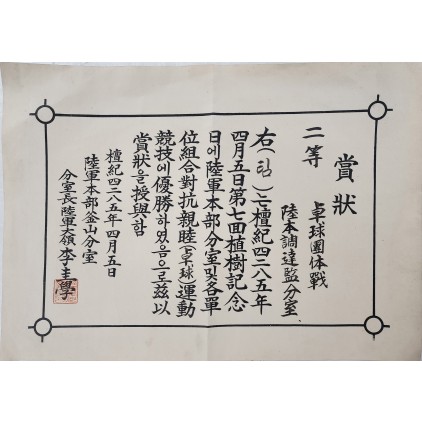 賞狀
二等
卓球團体戰
陸本調達監分室
右(팀)는檀紀四二八五年
四月五日第七面植樹記念
日에陸軍本部分室및各單
位組合對抗親睦(卓球)運動
競技에優勝하였음으로玆以
賞狀을授與함
檀紀四二八五年四月五日
陸軍本部釜山分室
分室長陸軍大領李圭學